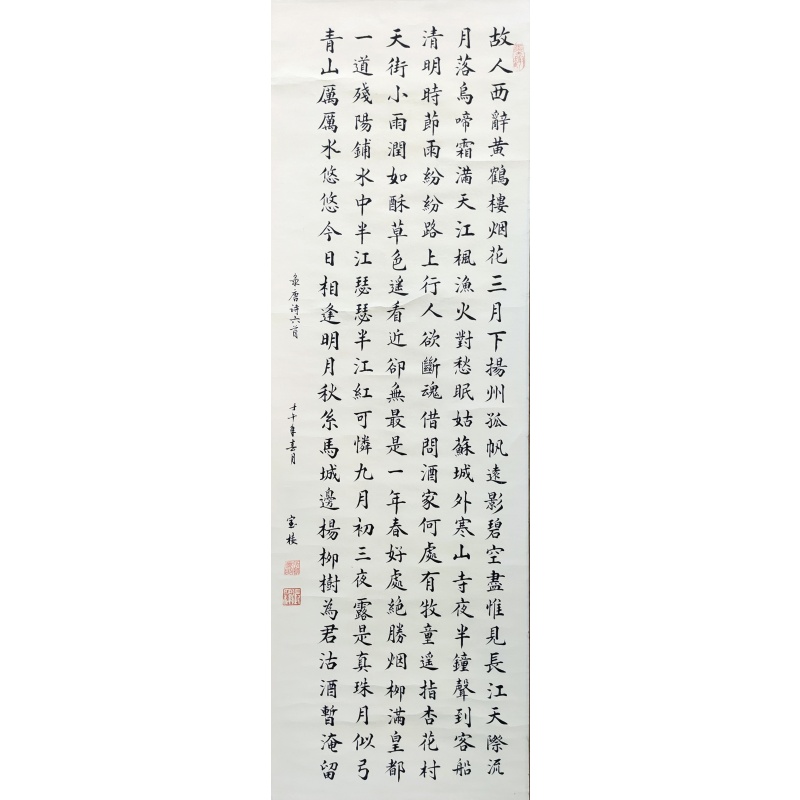 故人西辭黄鶴樓烟花三月下揚州孤帆遠影碧空盡惟見長江天際流
月落烏啼霜滿天江楓漁火對愁眠姑蘇城外寒山寺夜半鐘聲到客船
清明時節雨紛紛路上行人欲斷魂借問酒家何處有牧童遥指杏花村
天街小雨潤如酥草色遥看近卻無最是一年春好處絶勝烟柳滿皇都
一道殘陽鋪水中半江瑟瑟半江紅可憐九月初三夜露是真珠月似弓
青山厲厲水悠悠今日相逢明月秋系馬城邊楊柳樹為君沽酒暫淹留
录唐诗六首 壬午年春月 宝